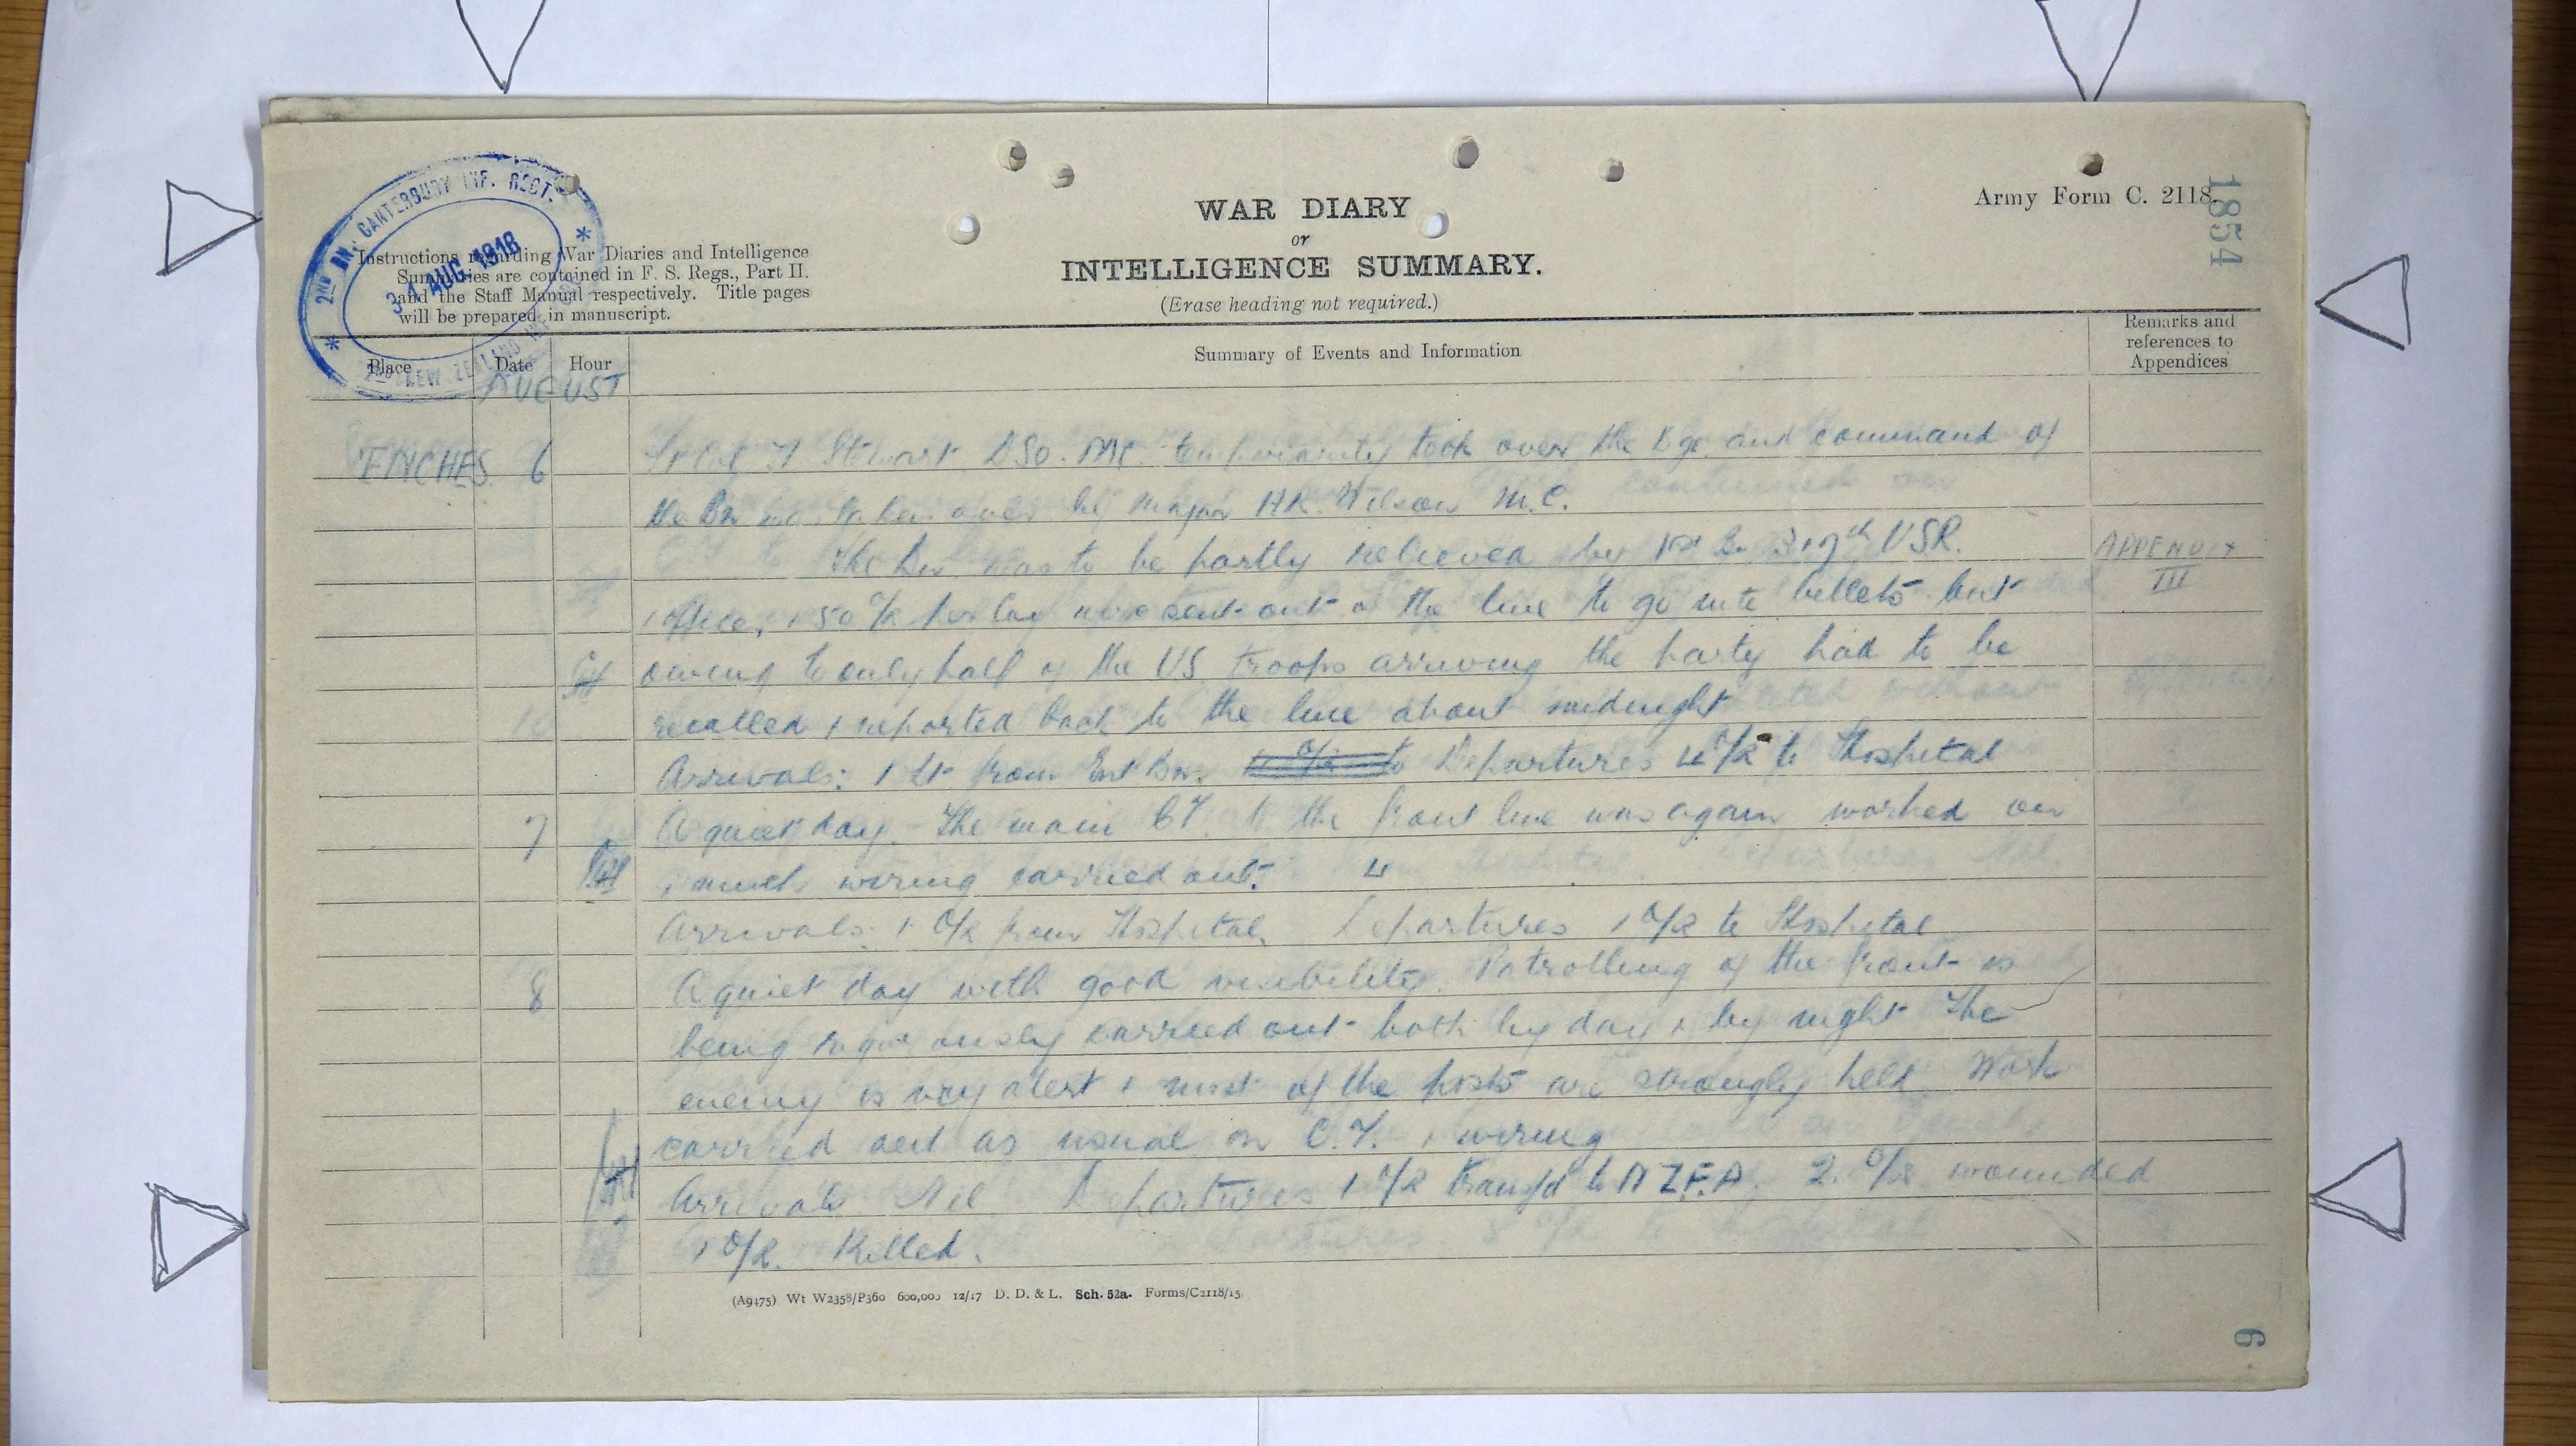 2ND BN. CANTERBURY INF. REGT.
31 AUG. 1918
1854
Army Form C. 2118.
WAR DIARY
or
INTELLIGENCE SUMMARY.
(Erase heading not required.)
Instructions regarding War Diaries and Intelligence
Summaries are contained in F. S. Regs., Part II.
and the Staff Manual respectively. Title pages
will be prepared in manuscript.
Place Date Hour Summary of Events and Information Remarks and
references to
Appendices
AUGUST
6 Lt Col Stewart DSO. MC temporarily took over the Bge and command of
the Bn was taken over by Major HR. Wilson M.C.
The Bn was to be partly relieved by 1st Bn 317th USR. APPENDIX
III
1 officer + 50 O/R per Coy were sent out of the line to go into billets but
owing to only half of the US troops arriving the party had to be
recalled + reported back to the line about midnight
Arrivals: 1 Lt from Ent Bn. to Departures 4 O/R to Hospital
7 A quiet day. The main C.T. to the front line was again worked on
+ much wiring carried out. 4
Arrivals: 1 O/R from Hospital Departures 1 O/R to Hospital
8 A quiet day with good visibility. Patrolling of the front is
being vigorously carried out both by day + by night The
enemy is very alert + most of the posts are strongly held Work
carried out as usual on C.T. + wiring
Arrivals Nil Departures 1 O/R transfd to NZ.F.A. 2. O/R wounded
1 O/R. Killed.
(A9475) Wt W2358/P360 600,000 12/17 D. D. & L. Sch. 52a. Forms/C2118/15.
6